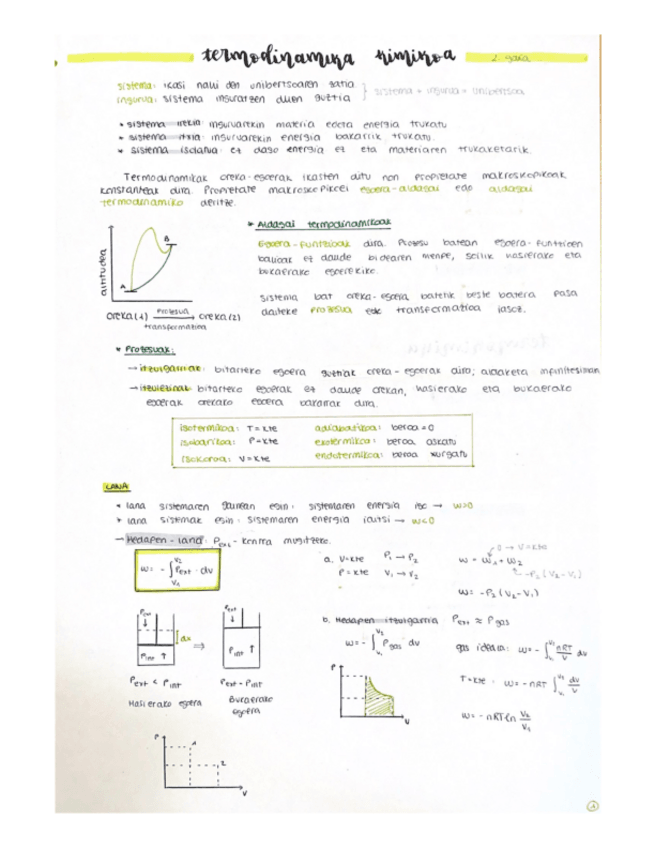 termodinamika kimikoa
2. gaia
sistema: ikasi nahi den unibertsoaren zatia
ingurua: sistema inguratzen duen guztia
sistema + ingurua = unibertsoa
* sistema irekia: inguruarekin materia edota energia trukatu
* sistema itxia: inguruarekin energia bakarrik trukatu.
* sistema isolatua: ez dago energia ez eta materiaren trukaketarik.
Termodinamikak oreka-egoerak ikasten ditu non propietate makroskopikoak
konstanteak dira. Propietate makroskopikoei egoera-aldagai edo aldagai
termodinamiko deritze.
* Aldagai termodinamikoak
Egoera-funtzioak dira. Prozesu batean egoera-funtzioen
balioak ez daude bidearen menpe, soilik hasierako eta
bukaerako egoerekiko.
altitudea
A
B
sistema bat oreka-egoera batetik beste batera pasa
daiteke prozesua edo transformazioa jasoz.
oreka(1) prozesua → oreka(2)
transformazioa
* Prozesuak:
→ itzulgarriak: bitarteko egoera guztiak oreka-egoerak dira; aldaketa infinitesimala
→ itzulezinak: bitarteko egoerak ez daude orekan, hasierako eta bukaerako
egoerak orekako egoera bakarrak dira.
isotermikoa: T = kte adiabatikoa: beroa = 0
isobarikoa: P = kte exotermikoa: beroa askatu
isokoroa: V = kte endotermikoa: beroa xurgatu
LANA
* lana sistemaren gainean egin: sistemaren energia igo → w>0
* lana sistemak egin: sistemaren energia jaitsi → w<0
→ Hedapen-lana: Pext-kontra mugitzeko.
w = - ∫V1V2 Pext · dv
a. V=kte P1 → P2
P = kte V1 → V2
w = w1 + w2
0 → V=kte
-P2 (V2-V1)
w = -P2 (V2-V1)
Pext
dx
Pint ↑
⇒
Pext
Pint ↑
Pext < Pint
Hasierako egoera
Pext = Pint
Bukaerako
egoera
b. Hedapen itzulgarria Pext ≈ Pgas
w = - ∫V1V2 Pgas dv
gas ideala: w = - ∫V1V2 nRT/V dv
T = kte · w = - nRT ∫V1V2 dv/V
w = - nRT ln V2/V1
P
V
P
1
2
V